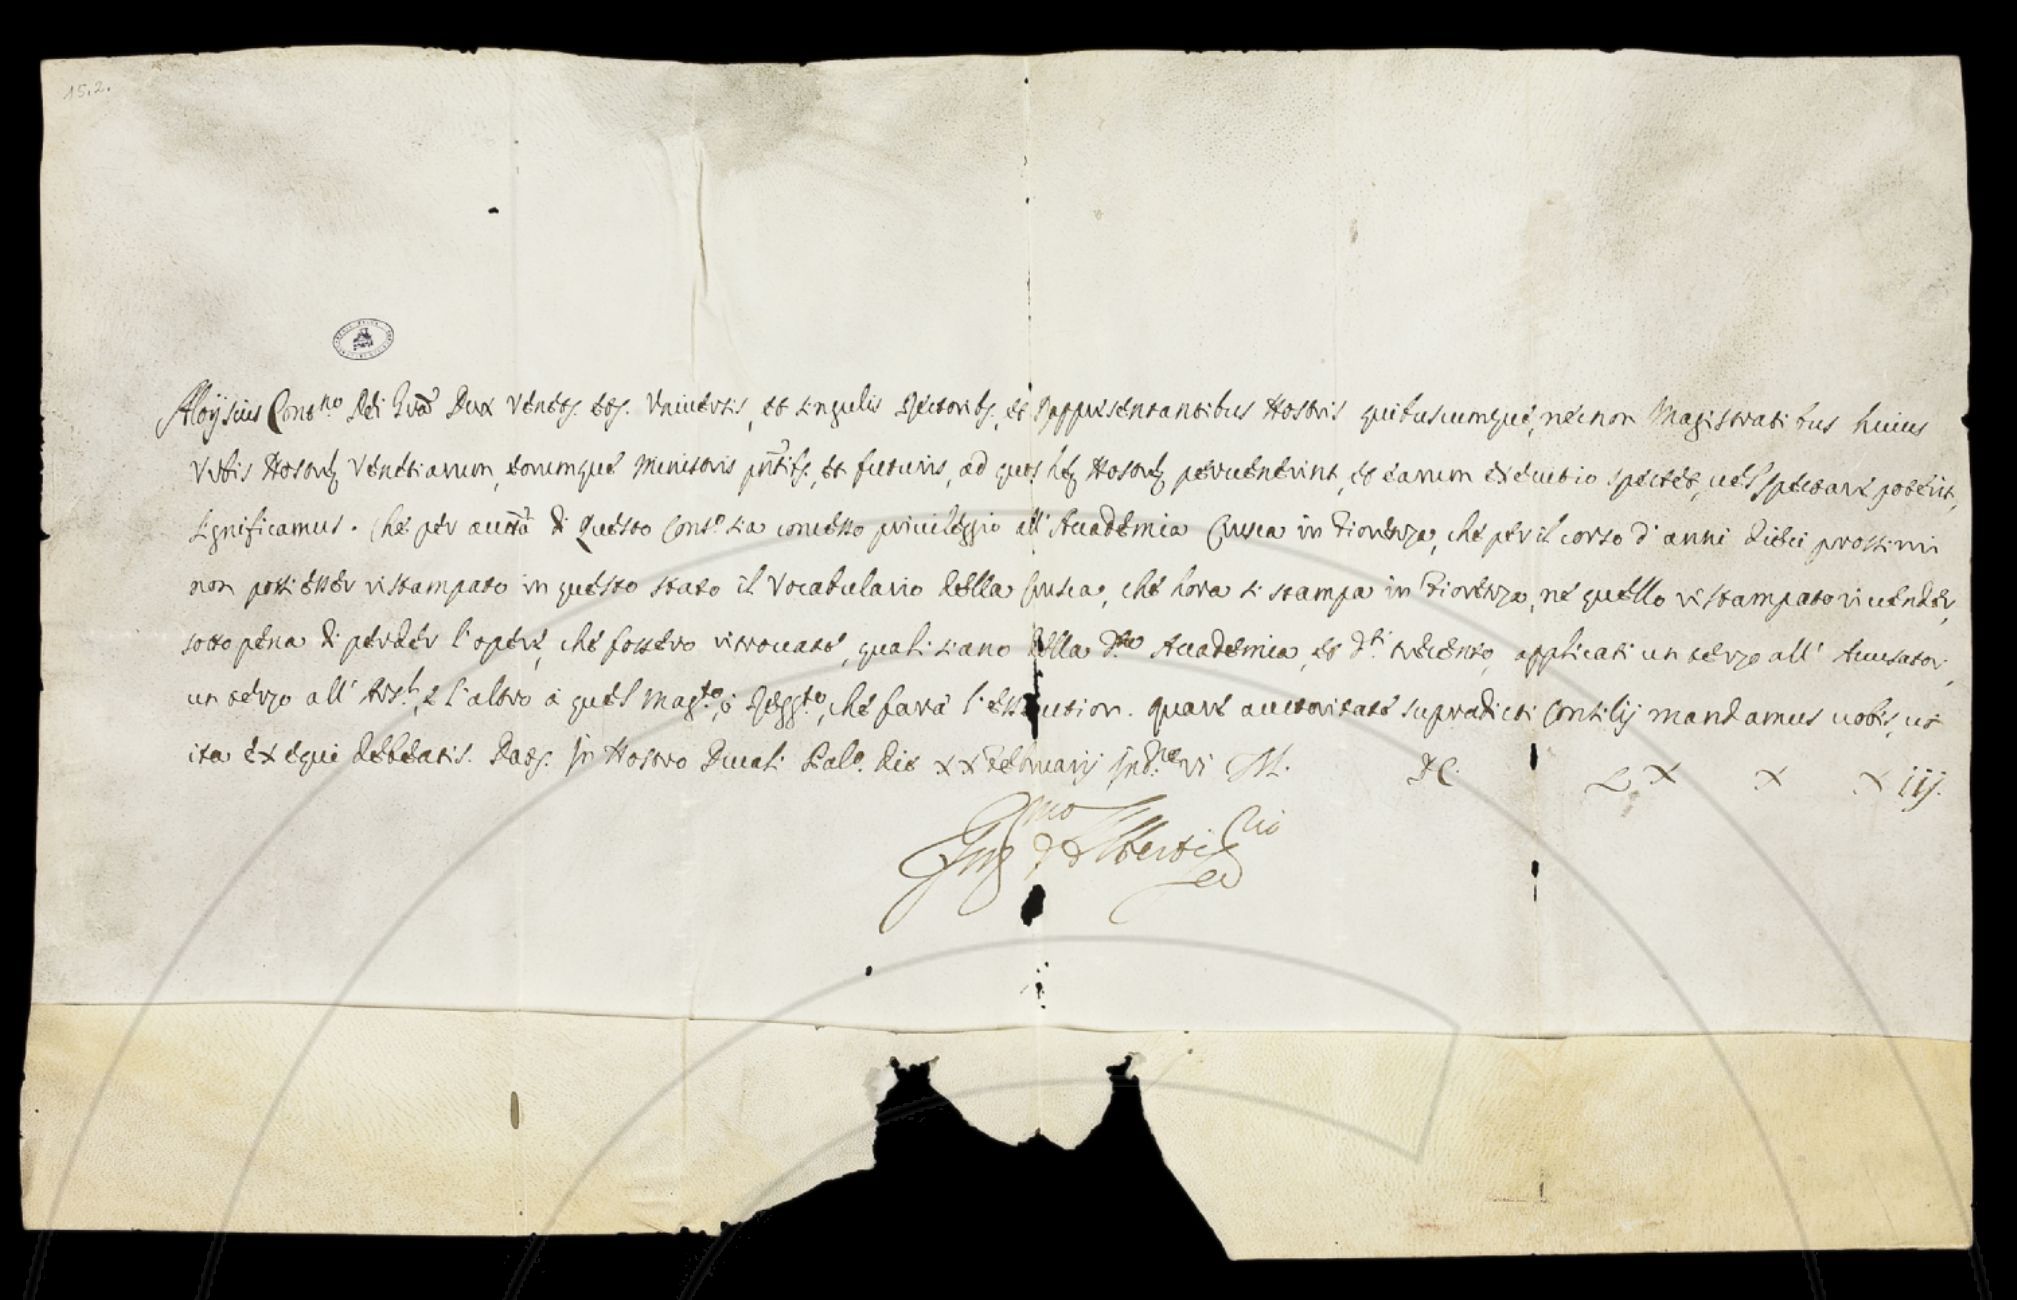 15.2.
Aloÿsius Cont.no Dei Gra Dux Venet. etc. Vniuersis, et singulis Rectorib. et Rappresentantibus Nostris quibuscumque, necnon Magistratibus huius
Vrbis Nostrę Venetiarum, eorumque Ministris pntib. et futuris, ad quos hę Nostrę peruenerint, et earum executio spectet, uel spectare poterit,
significamus. Che per auttà di questo Cons.o sia concesso priuileggio all' Accademia Crusca in Fiorenza, che per il corso d' anni dieci prossimi
non possi esser ristampato in questo stato il Vocabulario della Crusca, che hora si stampa in Fiorenza, ne quello ristampato riuender,
sotto pena di perder l' opere, che fossero ritrouate, quali siano della d.ta Accademia, et d.ti trecento, applicati un terzo all' Accusator,
un terzo all' Ars.l, e l' altro à quel Mag.to, ò Regg.to, che farà l' essecution. Quare auctoritate supradicti Consilij mandamus uobis, ut
ita exequi debeatis. Dat. In Nostro Ducali Pal.o die xx Februarij Ind.ne vi M. DC. LX X X iij.